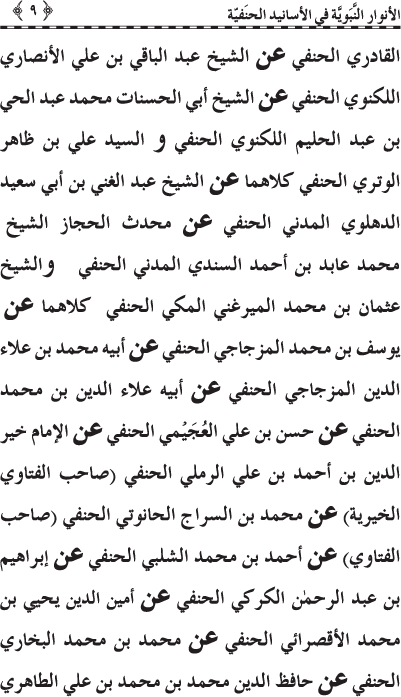 الأنوار النَّبَويَّة في الأسانيد الحنَفيّة ﴿ ٩ ﴾
القادري الحنفي عن الشيخ عبد الباقي بن علي الأنصاري
اللكنوي الحنفي عن الشيخ أبي الحسنات محمد عبد الحي
بن عبد الحليم اللكنوي الحنفي و السيد علي بن ظاهر
الوتري الحنفي كلاهما عن الشيخ عبد الغني بن أبي سعيد
الدهلوي المدني الحنفي عن محدث الحجاز الشيخ
محمد عابد بن أحمد السندي المدني الحنفي والشيخ
عثمان بن محمد الميرغني المكي الحنفي كلاهما عن
يوسف بن محمد المزجاجي الحنفي عن أبيه محمد بن علاء
الدين المزجاجي الحنفي عن أبيه علاء الدين بن محمد
الحنفي عن حسن بن علي العُجَيْمي الحنفي عن الإمام خير
الدين بن أحمد بن علي الرملي الحنفي (صاحب الفتاوي
الخيرية) عن محمد بن السراج الحانوتي الحنفي (صاحب
الفتاوي) عن أحمد بن محمد الشلبي الحنفي عن إبراهيم
بن عبد الرحمٰن الكركي الحنفي عن أمين الدين يحيي بن
محمد الأقصرائي الحنفي عن محمد بن محمد البخاري
الحنفي عن حافظ الدين محمد بن محمد بن علي الطاهري